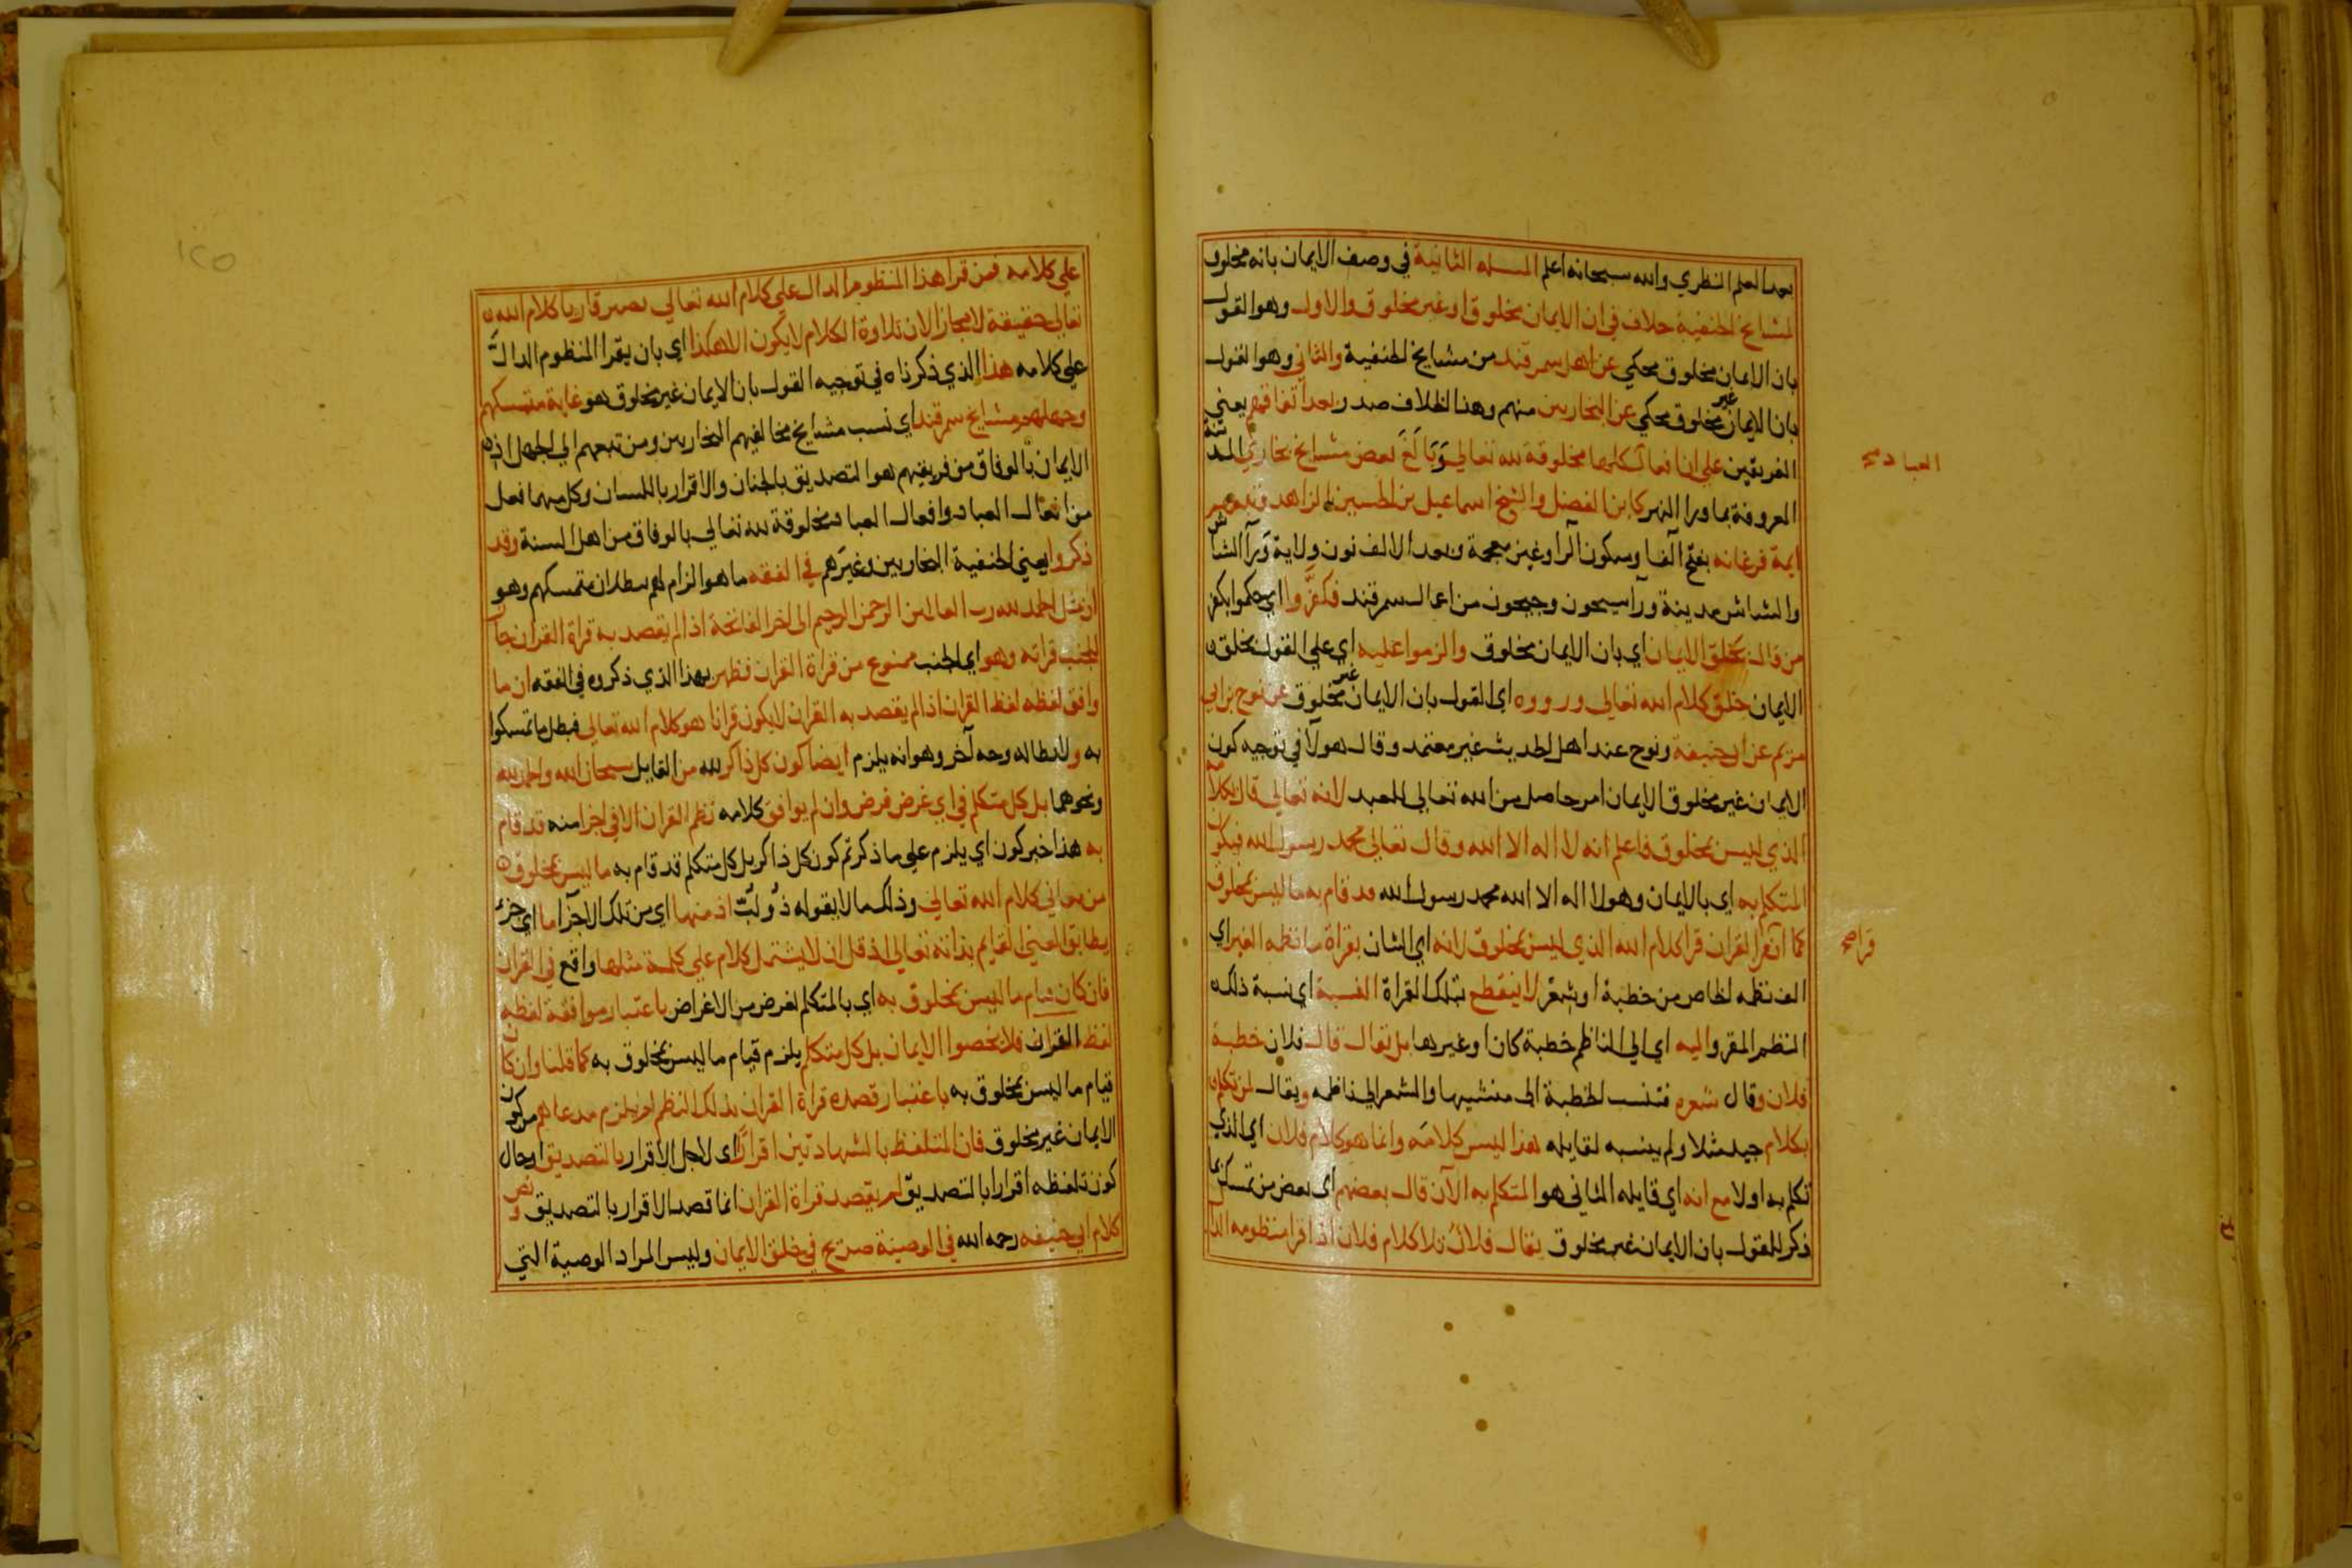 بعد العلم النظري والله سبحانه اعلم المسله الثانية في وصف الايمان بانه مخلوق
لمشايخ الحنفية خلاف في ان الايمان مخلوق او غير مخلوق والاول وهو القول
بان الايمان مخلوق محكي عن اهل سمرقند من مشايخ الحنفية والثاني وهو القول
بان الايمان غير مخلوق محكي عن البخاريين منهم وهذا الخلاف صدر بعد اتفاقهم يعني
الفريقين علي ان افعال كلها مخلوقة لله تعالي وبالغ بعض مشايخ بخاري المدينة
العباد صح
المعروفة بما ورا النهر كابن الفضل والشيخ اسماعيل بن الحسين الزاهد وتبعهم
ايمة فرغانه بفتح الفا وسكون الرا وغين معجمة وبعد الالف نون ولاية ورآ الشاش
والشاش مدينة ورآ سيحون وجيحون من اعمال سمرقند فكفروا اي حكموا بكفر
من قال بخلق الايمان اي بان الايمان مخلوق والزموا عليه اي علي القول بخلق
الايمان خلق كلام الله تعالي ورووه اي القول بان الايمان غير مخلوق عن نوح بن ابي
مريم عن ابي حنيفة ونوح عند اهل الحديث غير معتمد وقال هولآ في توجيه كون
الايمان غير مخلوق الايمان امر حاصل من الله تعالي للعبد لانه تعالي قال بكلامه
الذي ليس بمخلوق فاعلم انه لا اله الا الله وقال تعالي محمد رسول الله فيكون
المتكلم به اي بالايمان وهو لا اله الا الله محمد رسول الله قد قام به ما ليس بمخلوق
كما ان قرا القران قرا كلام الله الذي ليس بمخلوق لانه اي الشان بقراة ما نظمه الغير اي
قرا صح
الف نظمه الخاص من خطبة او شعر لا ينقطع بتلك القراة النسبة اي نسبة ذلك
النظم المقرو اليه اي الي الناظم خطبة كان او غيرها بل يقال قال فلان خطبة
فلان وقال شعره فتنسب الخطبة الى منشيها والشعر الي ناظمه ويقال لمن تكلم
بكلام جيد مثلا ولم ينسبه لقايله هذا ليس كلامه وانما هو كلام فلان اي الذي
تكلم به اولا مع انه اي قايله الثاني هو المتكلم به الآن قال بعضهم اي بعض من تمسك بما
ذكر للقول بان الايمان غير مخلوق يقال فلان تلا كلام فلان اذا قرا منظومه الدال
علي كلامه فمن قرا هذا المنظوم الدال علي كلام الله تعالي يصير قاريا كلام الله
تعالي حقيقة لا مجازا لان تلاوة الكلام لا يكون الا هكذا اي بان يقرا المنظوم الدال
علي كلامه هذا الذي ذكرناه في توجيه القول بان الايمان غير مخلوق هو غاية متمسكهم
وجهلهم مشايخ سمرقند اي نسب مشايخ مخالفيهم البخاريين ومن تبعهم الي الجهل اذ
الايمان بالوفاق من فريقيهم هو التصديق بالجنان والاقرار باللسان وكل منهما فعل
من افعال العباد وافعال العباد مخلوقة لله تعالي بالوفاق من اهل السنة وقد
ذكروا يعني الحنفية البخاريين وغيرهم في الفقه ما هو الزام لهم ببطلان متمسكهم وهو
ان مثل الحمد لله رب العالمين الرحمن الرحيم الى اخر الفاتحة اذا لم يقصد به قراة القران جاز
للجنب قراته وهو اي الجنب ممنوع من قراة القران فظهر بهذا الذي ذكروه في الفقه ان ما
وافق لفظه لفظ القران اذا لم يقصد به القران لا يكون قرانا هو كلام الله تعالي فبطل ما تمسكوا
به ولابطاله وجه آخر وهو انه يلزم ايضا كون كل ذاكر لله من القايل سبحان الله والحمد لله
ونحوهما بل كل متكلم في اي غرض فرض وان لم يوافق كلامه نظم القران الا في اجزا منه قد قام
به هذا خبر كون اي يلزم علي ما ذكرتم كون كل ذاكر بل كل متكلم قد قام به ما ليس بمخلوق
من معاني كلام الله تعالي وذلك ما لا يقوله ذو لب اذ منها اي من تلك الاجزا ما اي جزء
يطابق المعني القايم بذاته تعالي اذ قل ان لا يشتمل كلام علي كلمة مثلها واقع في القران
فان كان قيام ما ليس بمخلوق به اي بالمتكلم لغرض من الاغراض باعتبار موافقة لفظه
لفظ القران فلا تخصوا الايمان بل كل متكلم يلزم قيام ما ليس بمخلوق به كما قلنا وان كان
قيام ما ليس بمخلوق به باعتبار قصده قراة القران بذلك النظم لم يلزم مدعاهم من كون
الايمان غير مخلوق فان المتلفظ بالشهادتين اقرارا اي لاجل الاقرار بالتصديق او حال
كون تلفظه اقرارا بالتصديق لم يقصد قراة القران انما قصد الاقرار بالتصديق ونص
كلام ابي حنيفه رحمه الله في الوصية صريح في خلق الايمان وليس المراد الوصية التي